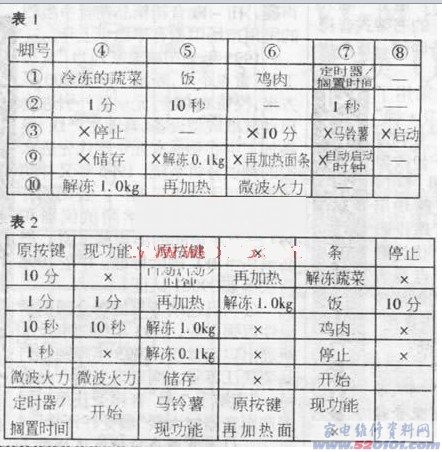 表 1
脚号 ④ ⑤ ⑥ ⑦ ⑧
① 冷冻的蔬菜 饭 鸡肉 定时器/搁置时间 —
② 1分 10秒 — 1秒 —
③ ×停止 — ×10分 ×马铃薯 ×启动
⑨ ×储存 ×解冻0.1kg ×再加热面条 ×自动启动时钟 —
⑩ 解冻1.0kg 再加热 微波火力 —
表 2
原按键 现功能 原按键 × 条 停止
10分 × 时钟 再加热 解冻蔬菜 ×
1分 1分 再加热 解冻1.0kg 饭 10分
10秒 10秒 解冻1.0kg × 鸡肉 ×
1秒 × 解冻0.1kg × 停止 ×
微波火力 微波火力 储存 × 开始
定时器/搁置时间 开始 马铃薯 原按键 现功能
现功能 再加热面 ×
家电维修资料网
www.520101.com